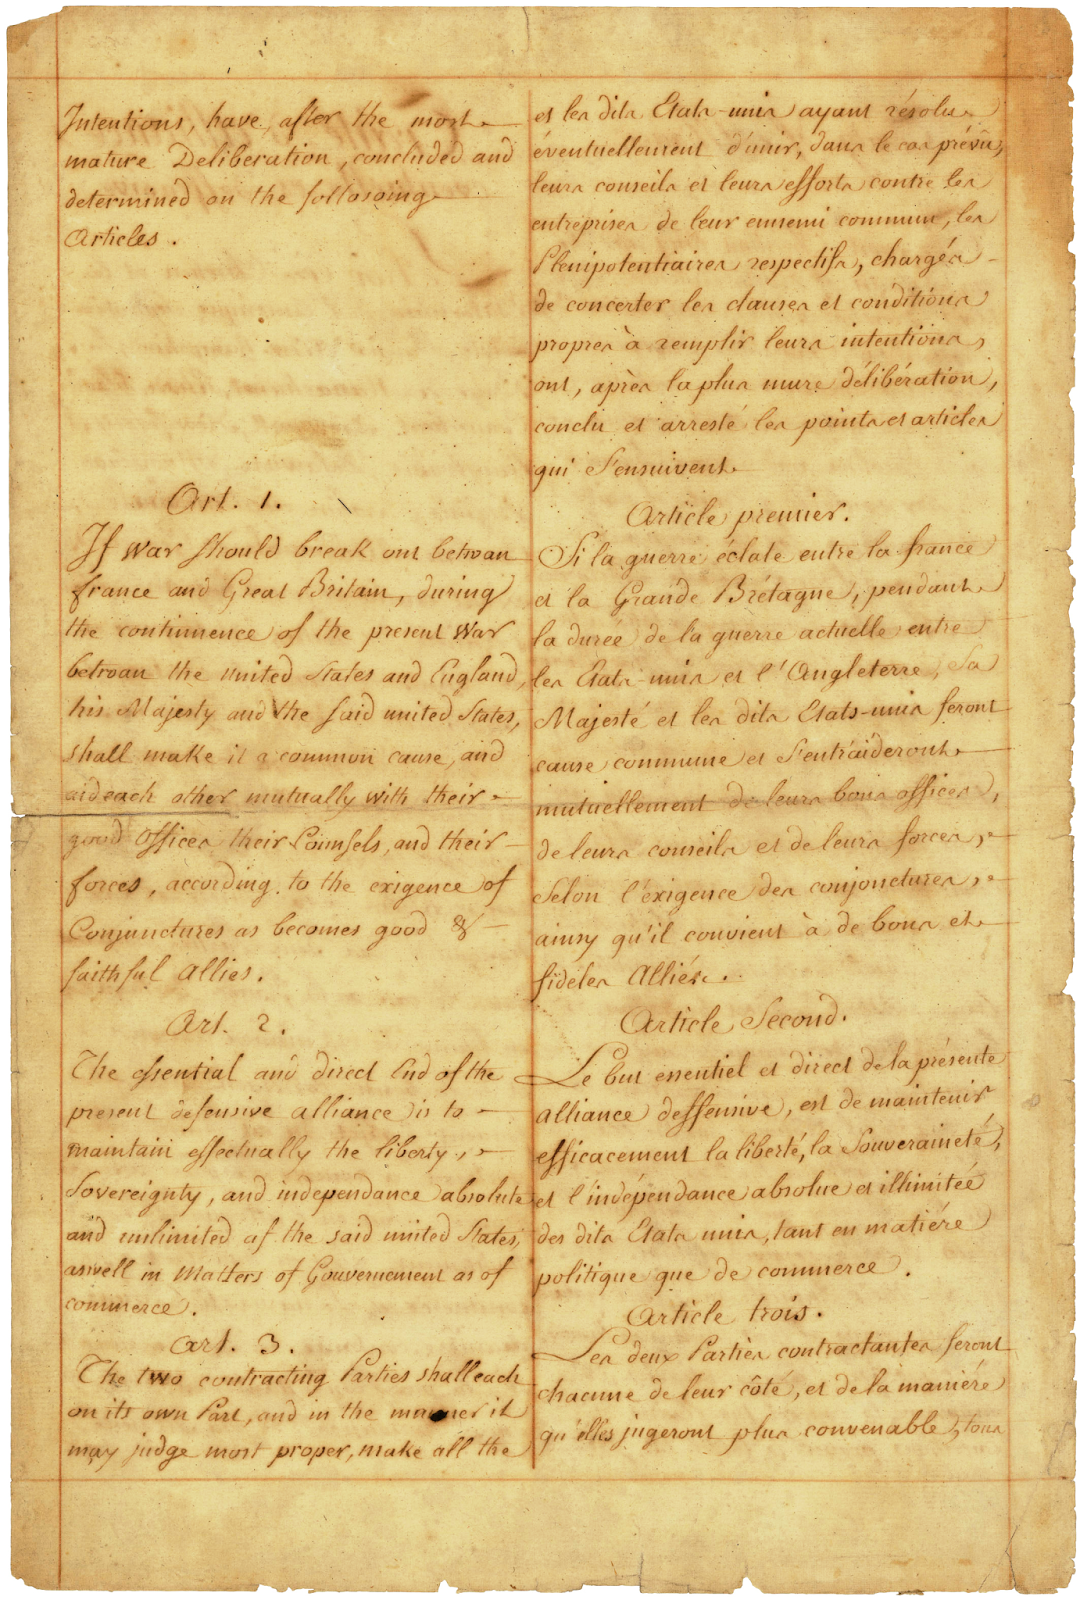 Intentions, have, after the most
mature Deliberation, concluded and
determined on the following
Articles.
Art. 1.
If war should break out betwan
france and Great Britain, during
the continuence of the present war
betwan the united States and England,
his Majesty and the said united States,
shall make it a common cause, and
aid each other mutually with their
good Offices their Counsels, and their
forces, according to the exigence of
Conjunctures as becomes good &
faithful Allies.
Art. 2.
The essential and direct End of the
present defensive alliance is to
maintain effectually the liberty,
Sovereignty, and independance absolute
and unlimited of the said united States,
aswell in Matters of Gouvernement as of
commerce.
Art. 3.
The two contracting Parties shall each
on its own Part, and in the manner it
may judge most proper, make all the
et les dits Etats-unis ayant résolu
éventuellement d'unir, dans le cas prévû,
leurs conseils et leurs efforts contre les
entreprises de leur ennemi commun, les
Plenipotentiaires respectifs, chargés
de concerter les clauses et conditions
propres à remplir leurs intentions,
ont, après la plus mure délibération,
conclu et arresté les points et articles
qui s'ensuivent.
Article premier.
Si la guerre éclate entre la france
et la Grande Brétagne, pendant
la durée de la guerre actuelle entre
les Etats-unis et l'Angleterre, Sa
Majesté et les dits Etats-unis feront
cause commune et s'entraideront
mutuellement de leurs bons offices,
de leurs conseils et de leurs forces,
selon l'exigence des conjonctures,
ainsy qu'il convient à de bons et
fidéles Alliés.
Article Second.
Le but essentiel et direct de la présente
alliance deffensive, est de maintenir
efficacement la liberté, la Souveraineté,
et l'indépendance absolue et illimitée
des dits Etats unis, tant en matiére
politique que de commerce.
Article trois.
Les deux Parties contractantes feront
chacune de leur côté, et de la maniére
qu'elles jugeront plus convenable, tous